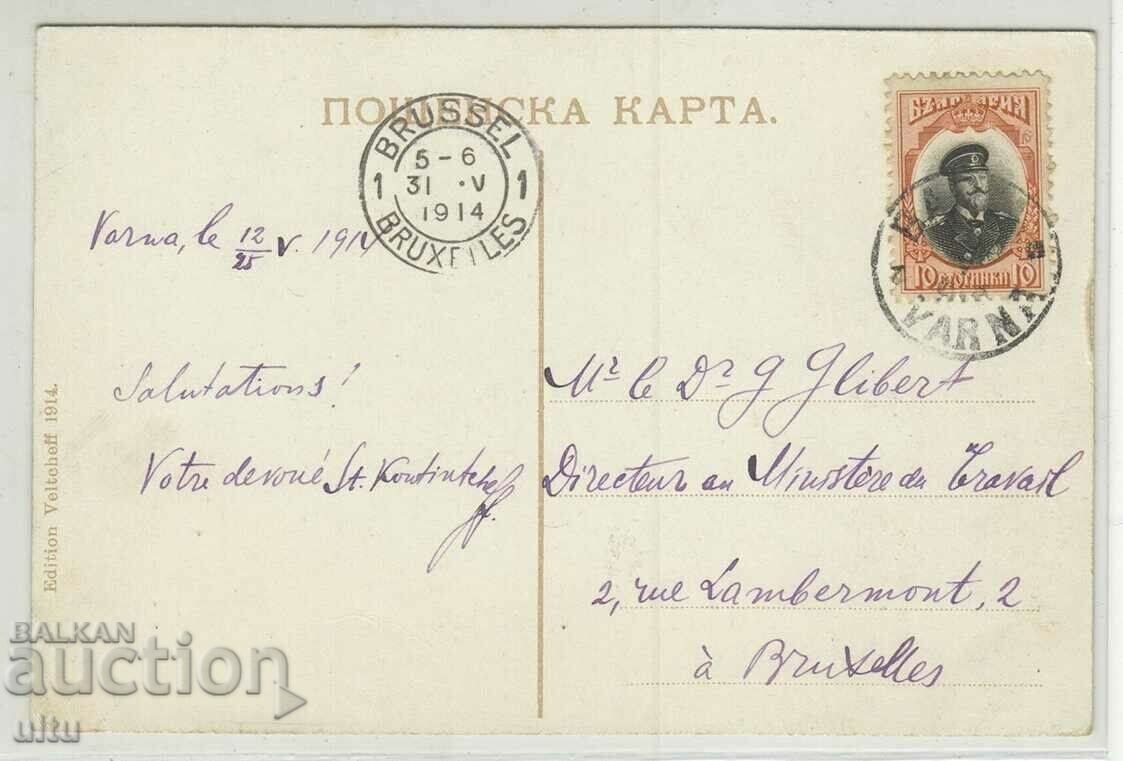 ПОЩЕНСКА КАРТА.
БЪЛГАРИЯ
10 СТОТИНКИ 10
VARNA
BRUSSEL
1 5-6 1
31 · V
1914
BRUXELLES
Varna, le 12/25 V. 1914
Salutations!
Votre devoué St.
Mr le Dr G Glibert
Directeur au Ministère du Travail
2, rue Lambermont, 2
à Bruxelles
Edition Veltcheff 1914.
BALKAN
auction
uitu